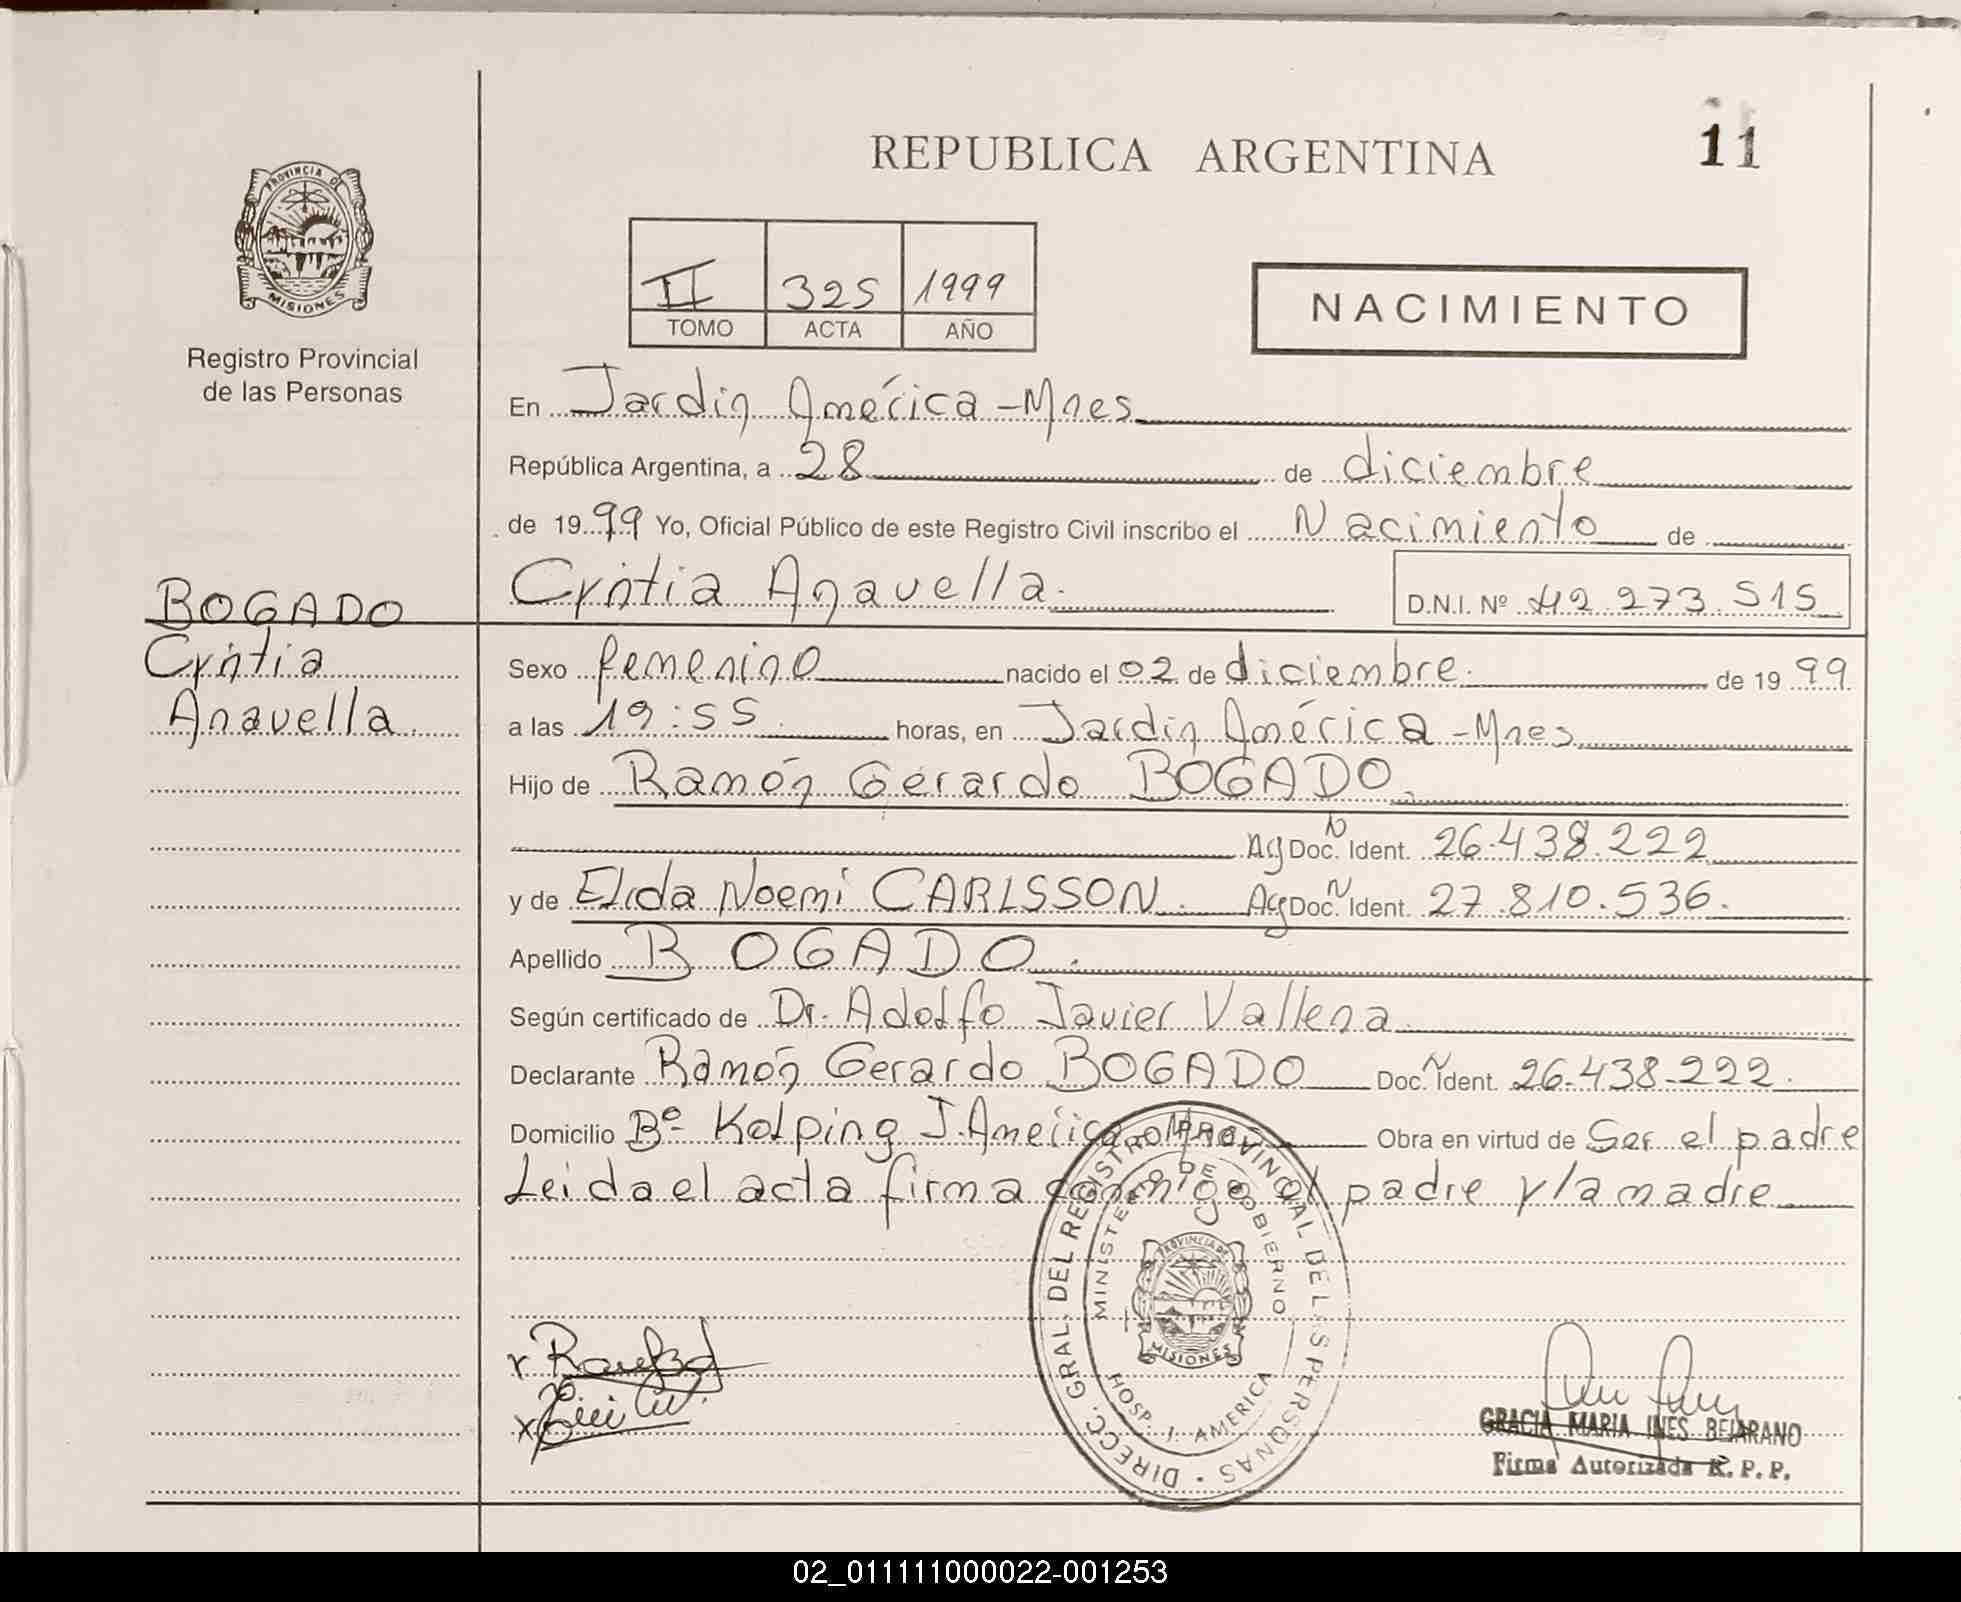 REPUBLICA ARGENTINA
11
PROVINCIA DE
MISIONES
Registro Provincial
de las Personas
II 325 1999
TOMO ACTA AÑO
NACIMIENTO
En Jardin América - Mnes
República Argentina, a 28 de diciembre
de 1999 Yo, Oficial Público de este Registro Civil inscribo el Nacimiento de
BOGADO
Cyntia
Anavella
Cyntia Anavella.
D.N.I. Nº 42.273.515
Sexo femenino nacido el 02 de diciembre. de 1999
a las 19:55. horas, en Jardin América - Mnes
Hijo de Ramón Gerardo BOGADO.
Arg Doc. N Ident. 26.438.222
y de Elida Noemi CARLSSON. Arg Doc. N Ident. 27.810.536.
Apellido BOGADO.
Según certificado de Dr. Adolfo Javier Vallena
Declarante Ramón Gerardo BOGADO Doc. N Ident. 26.438.222.
Domicilio Bº Kolping J. América Obra en virtud de Ser el padre
Leida el acta firma conmigo el padre y la madre
DIRECC. GRAL. DEL REGISTRO PROVINCIAL DE LAS PERSONAS
MINISTERIO DE GOBIERNO
PROVINCIA DE
MISIONES
HOSP. J. AMERICA
GRACIA MARIA INES BEJARANO
Firma Autorizada R.P.P.
02_011111000022-001253